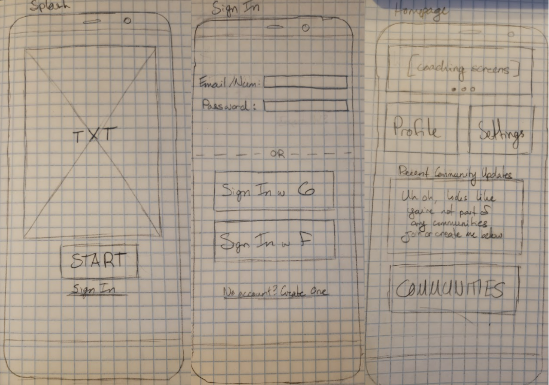 Splash
TXT
START
Sign In
Sign In
Email/Num:
Password:
OR
Sign In w G
Sign In w F
No account? Create One
Homepage
[coaching screens]
Profile
Settings
Recent Community Updates
Uh oh, looks like
you're not part of
any communities
join or create one below
COMMUNITIES